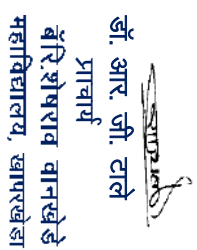 डॉ. आर. जी. टाले
प्राचार्य
बॅरि.शेषराव वानखेडे
महाविद्यालय, खापरखेडा